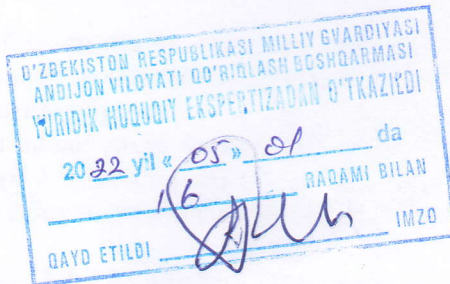 O'ZBEKISTON RESPUBLIKASI MILLIY GVARDIYASI
ANDIJON VILOYATI QO'RIQLASH BOSHQARMASI
YURIDIK HUQUQIY EKSPERTIZADAN O'TKAZILDI
2022 yil « 05 » 01 da
16 RAQAMI BILAN
QAYD ETILDI IMZO